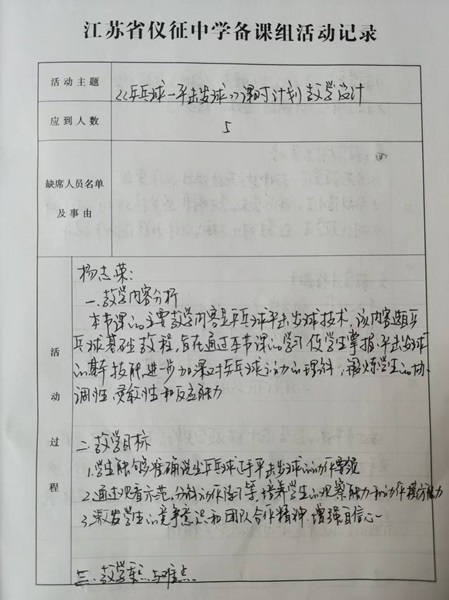 江苏省仪征中学备课组活动记录
活动主题
《乒乓球—平击发球》课时计划教学设计
应到人数
5
缺席人员名单
及事由
活动过程
杨志荣:
一.教学内容分析
本节课的主要教学内容是乒乓球平击发球技术,该内容选自乒
乓球基础教程,旨在通过本节课的学习,使学生掌握平击发球
的基本技能,进一步加深对乒乓球运动的理解,锻炼学生的协
调性、灵敏性和反应能力
二.教学目标
1.学生能够准确说出乒乓球平击发球的动作要领
2.通过观看示范、分解动作练习等,培养学生的观察能力和动作模仿能力
3.激发学生的竞争意识和团队合作精神,增强自信心
三.教学重点与难点